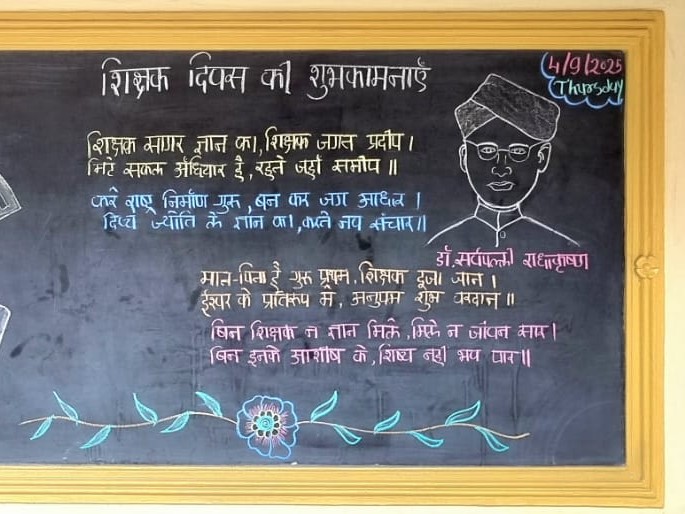 शिक्षक दिवस की शुभकामनाएँ
4/9/2025
Thursday
शिक्षक सागर ज्ञान का, शिक्षक जगत प्रदीप।
मिटे सकल अँधियार है, रहते जहाँ समीप॥
करे राष्ट्र निर्माण गुरू, बन कर जग आधार।
दिव्य ज्योति के ज्ञान का, करते नव संचार॥
डॉ. सर्वपल्ली राधाकृष्ण
मात-पिता है गुरू प्रथम, शिक्षक दूजा जान।
ईश्वर के प्रतिरूप में, अनुपम शुभ वरदान॥
बिन शिक्षक न ज्ञान मिले, मिले न जीवन सार।
बिन इनके आशीष के, शिष्य नही भव पार॥